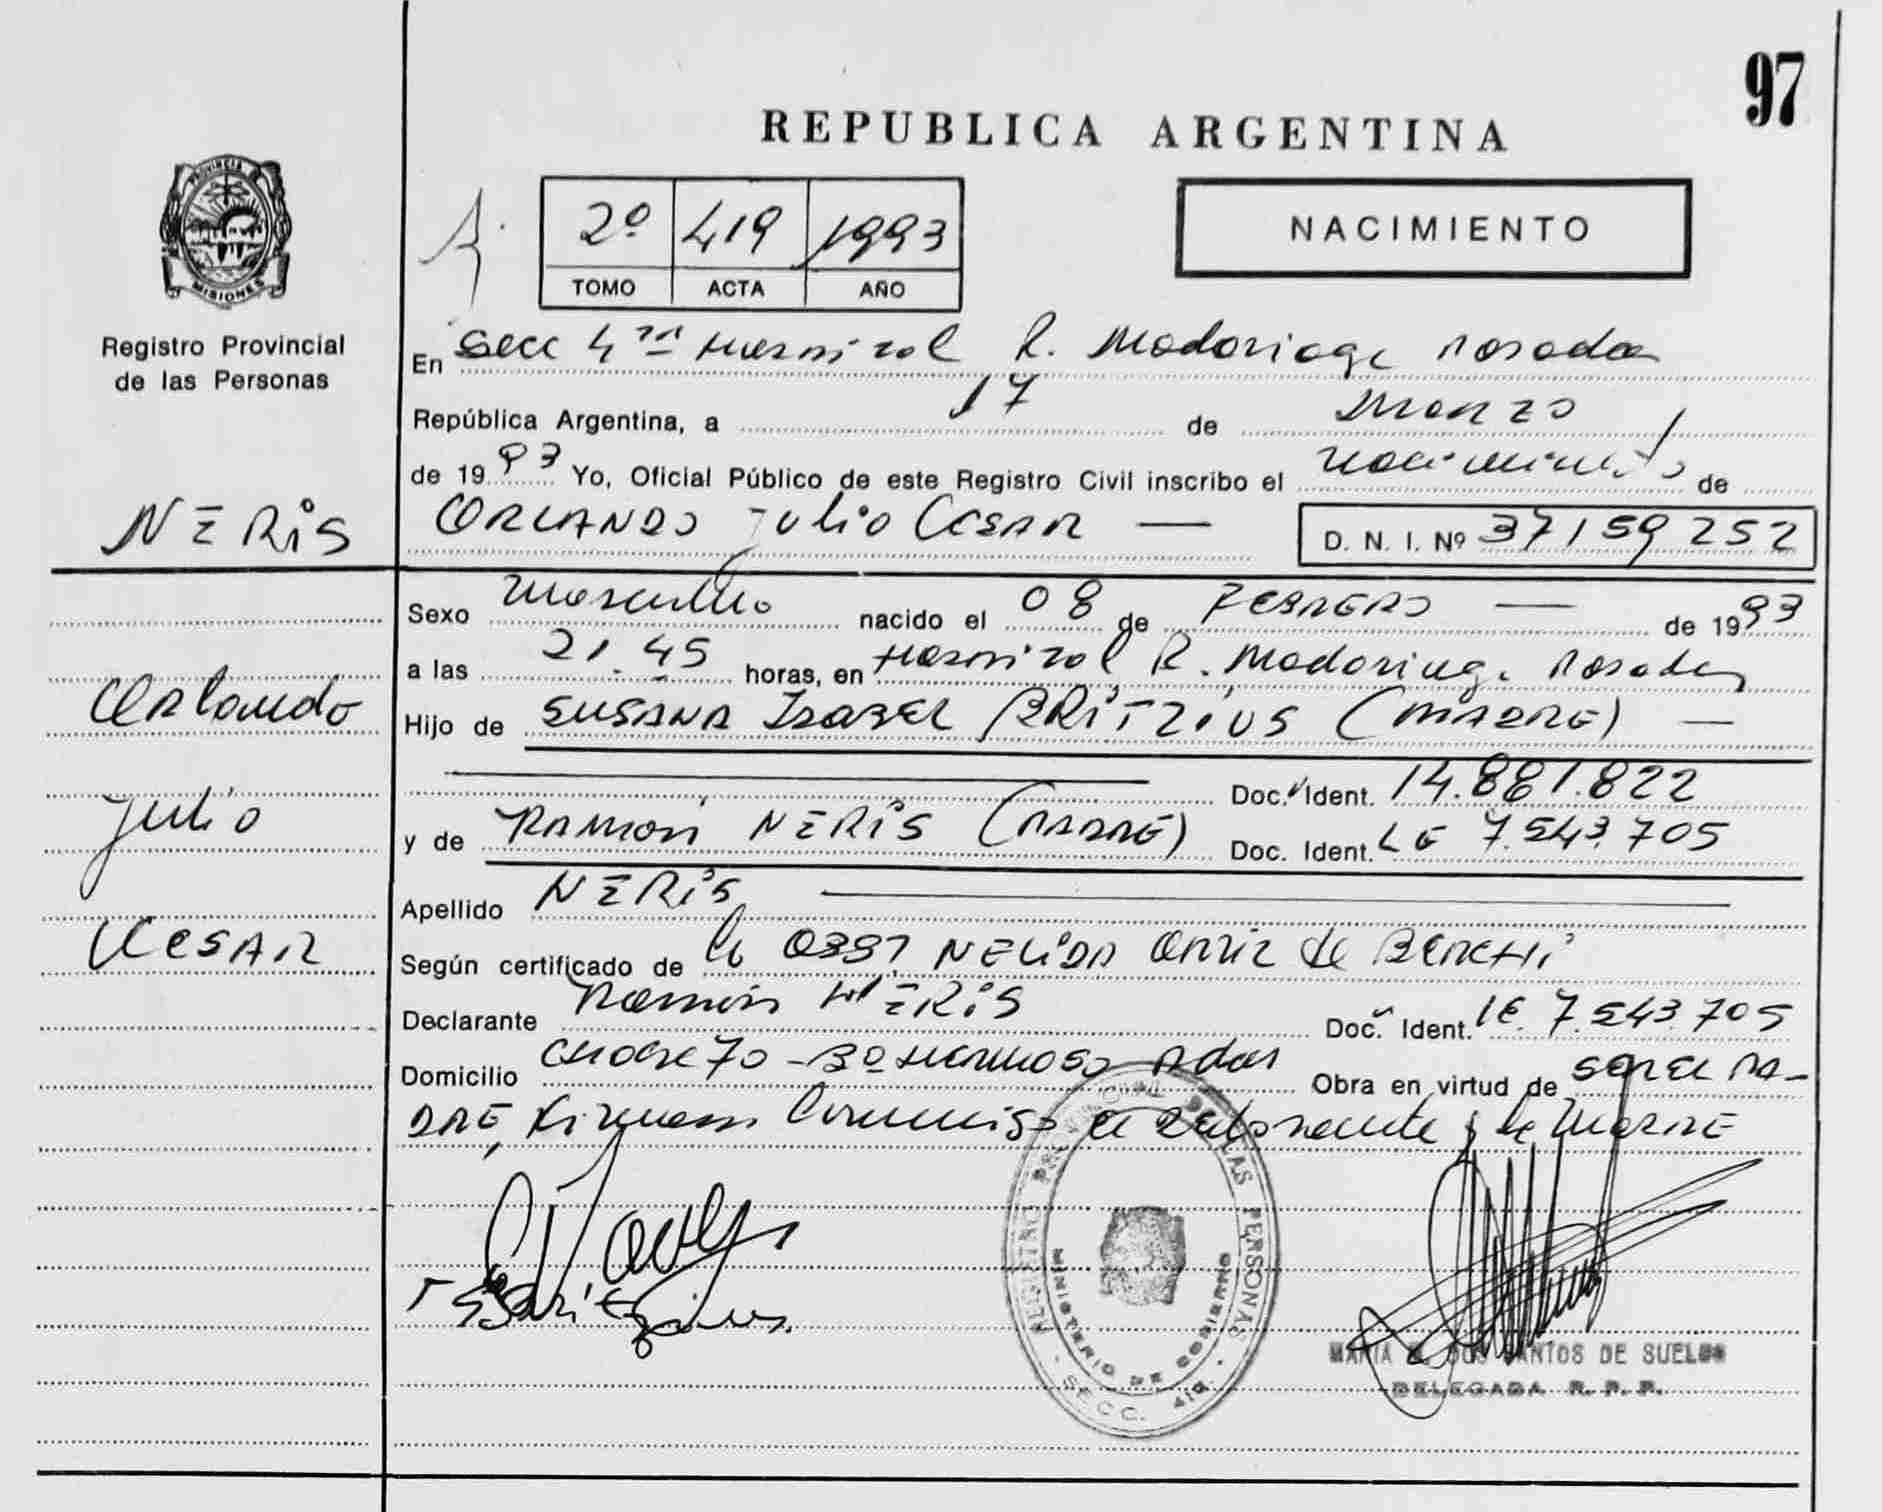 97
REPUBLICA ARGENTINA
PROVINCIA DE
MISIONES
2º 419 1993
TOMO ACTA AÑO
NACIMIENTO
Registro Provincial
de las Personas
En Secc 4ta Hospital R. Madariaga Posadas
República Argentina, a 17 de Marzo
de 1993 Yo, Oficial Público de este Registro Civil inscribo el nacimiento de
NERIS
ORLANDO Julio CESAR — D. N. I. Nº 37159252
Sexo Masculino nacido el 08 de FEBRERO — de 1993
a las 21.45 horas, en Hospital R. Madariaga Posadas
Orlando
Hijo de SUSANA ISABEL BRITZIUS (MADRE) —
Doc. Ident. 14.881.822
Julio
y de RAMON NERIS (PADRE) Doc. Ident. LE 7.543.705
Apellido NERIS
CESAR
Según certificado de la NELIDA ORTIZ de
Declarante Ramón NERIS Doc. Ident. LE. 7.543.705
Domicilio Bº Hermoso Pdas Obra en virtud de SER EL PA-
DRE, Firman Conmigo el declarante y la MADRE
REGISTRO PROVINCIAL DE LAS PERSONAS
MINISTERIO DE GOBIERNO
SECC. 4ta.
MARIA DOS SANTOS DE SUELDO
DELEGADA R. P. P.